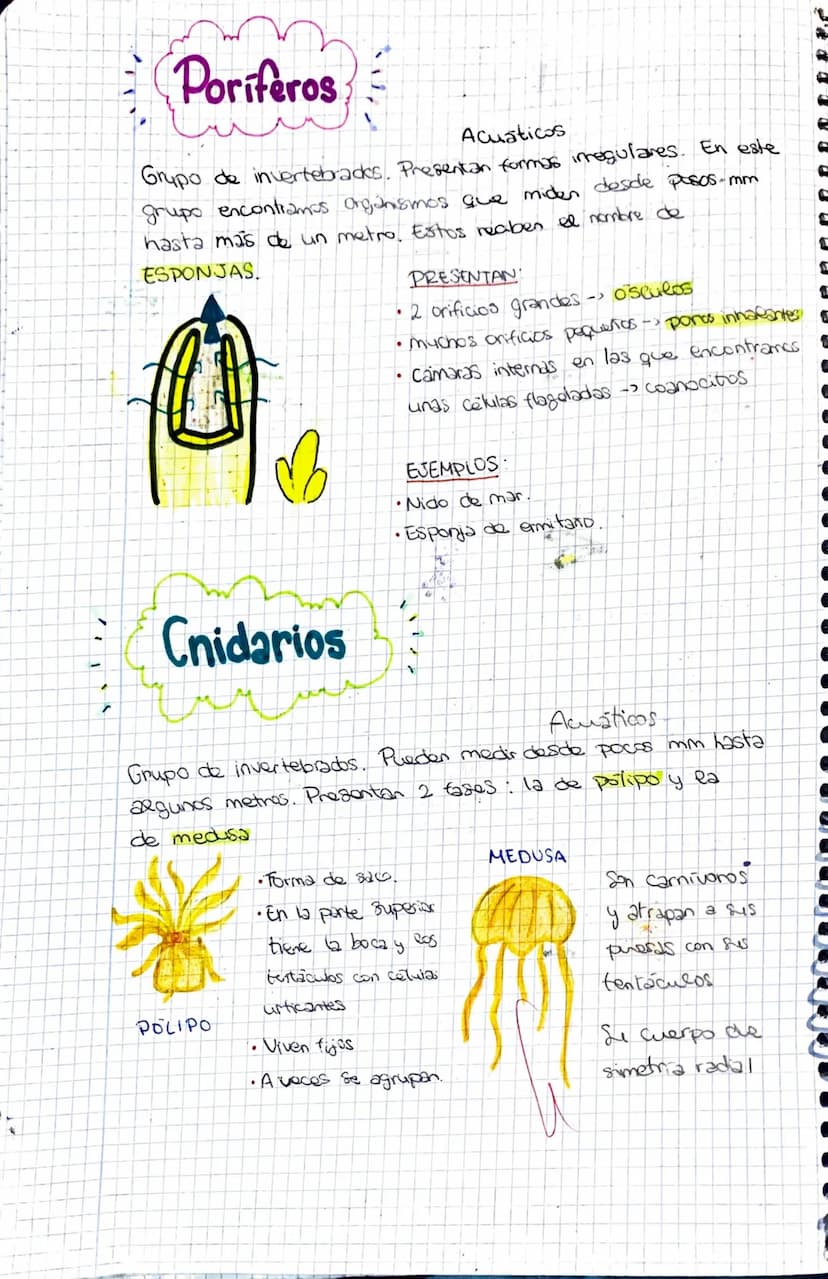 Poríferos
Acuáticos
Grupo de invertebrados. Presentan formas irregulares. En este
grupo encontramos organismos que miden desde pocos mm
hasta más de un metro. Estos reciben el nombre de
ESPONJAS.
PRESENTAN:
• 2 orificios grandes -> ósculos
• muchos orificios pequeños -> poros inhalantes
• Cámaras internas en las que encontramos
unas células flageladas -> coanocitos
EJEMPLOS:
• Nido de mar.
• Esponja de ermitaño.
Cnidarios
Acuáticos
Grupo de invertebrados. Pueden medir desde pocos mm hasta
algunos metros. Presentan 2 fases: la de pólipo y la
de medusa
• Forma de saco.
• En la parte superior
tiene la boca y los
tentáculos con células
urticantes
• Viven fijos
• A veces se agrupan.
PÓLIPO
MEDUSA
Son carnívoros
y atrapan a sus
presas con sus
tentáculos
Su cuerpo de
simetría radial